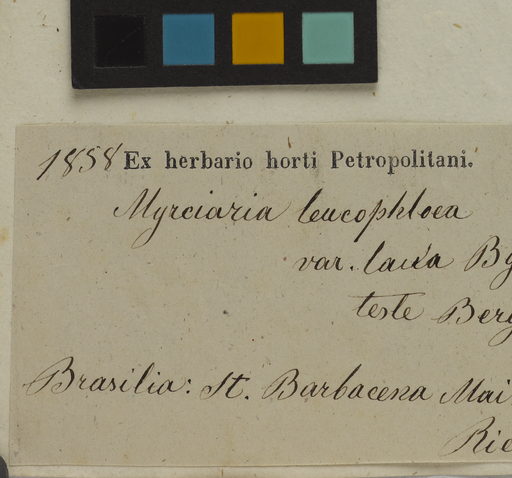 1858 Ex herbario horti Petropolitani.
Myrciaria leucophloea
var. laxa Bg
teste Berg
Brasilia: St. Barbacena Mai
Rie